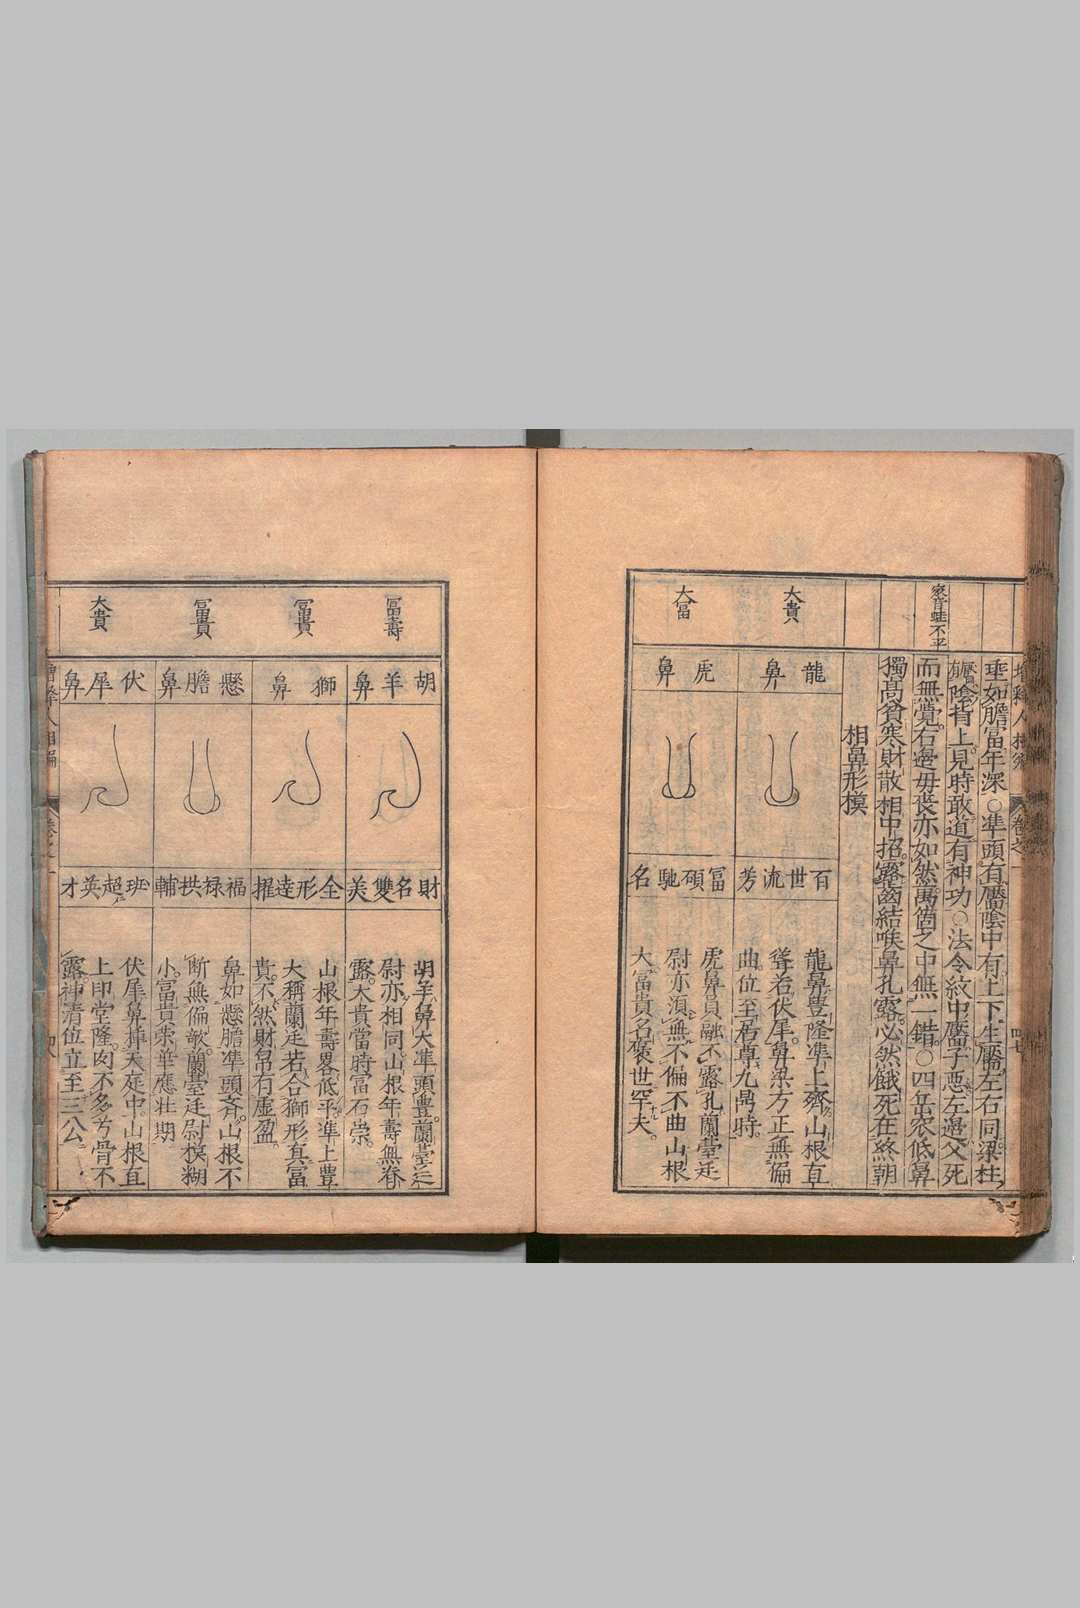 垂如膽富年深○準頭有黶陰中有上下生黶左右同梁柱
黶陰背上見時敢道有神功○法令紋中黶子悪左邉父死
而無覺右邉毋喪亦如然萬箇之中無一錯○四岳窊低鼻
窊音蛙不平
獨高貧寒財散相中招露齒結喉鼻孔露必然餓死在終朝
相鼻形模
大貴
龍鼻
百世流芳
龍鼻豊隆準上齊山根直
聳若伏犀鼻梁方正無偏
曲位至居尊九鼎時
大冨
虎鼻
冨碩馳名
虎鼻員融不露孔蘭臺廷
尉亦湏無不偏不曲山根
大冨貴名褒世罕夫
冨壽
胡羊鼻
財名雙美
胡羊鼻大準頭豊蘭臺廷
尉亦相同山根年壽無脊
露大貴當時冨石崇
冨貴
獅鼻
全形達擢
山根年壽畧低平準上豊
大稱蘭廷若合獅形真冨
貴不然財帛有虛盈
冨貴
懸膽鼻
福禄拱輔
鼻如懸膽準頭齊山根不
断無偏欹蘭臺廷尉模糊
小冨貴榮華應壮期
大貴
伏犀鼻
班超英才
伏犀鼻揷天庭中山根直
上印堂隆肉不多兮骨不
露神清位立至三公